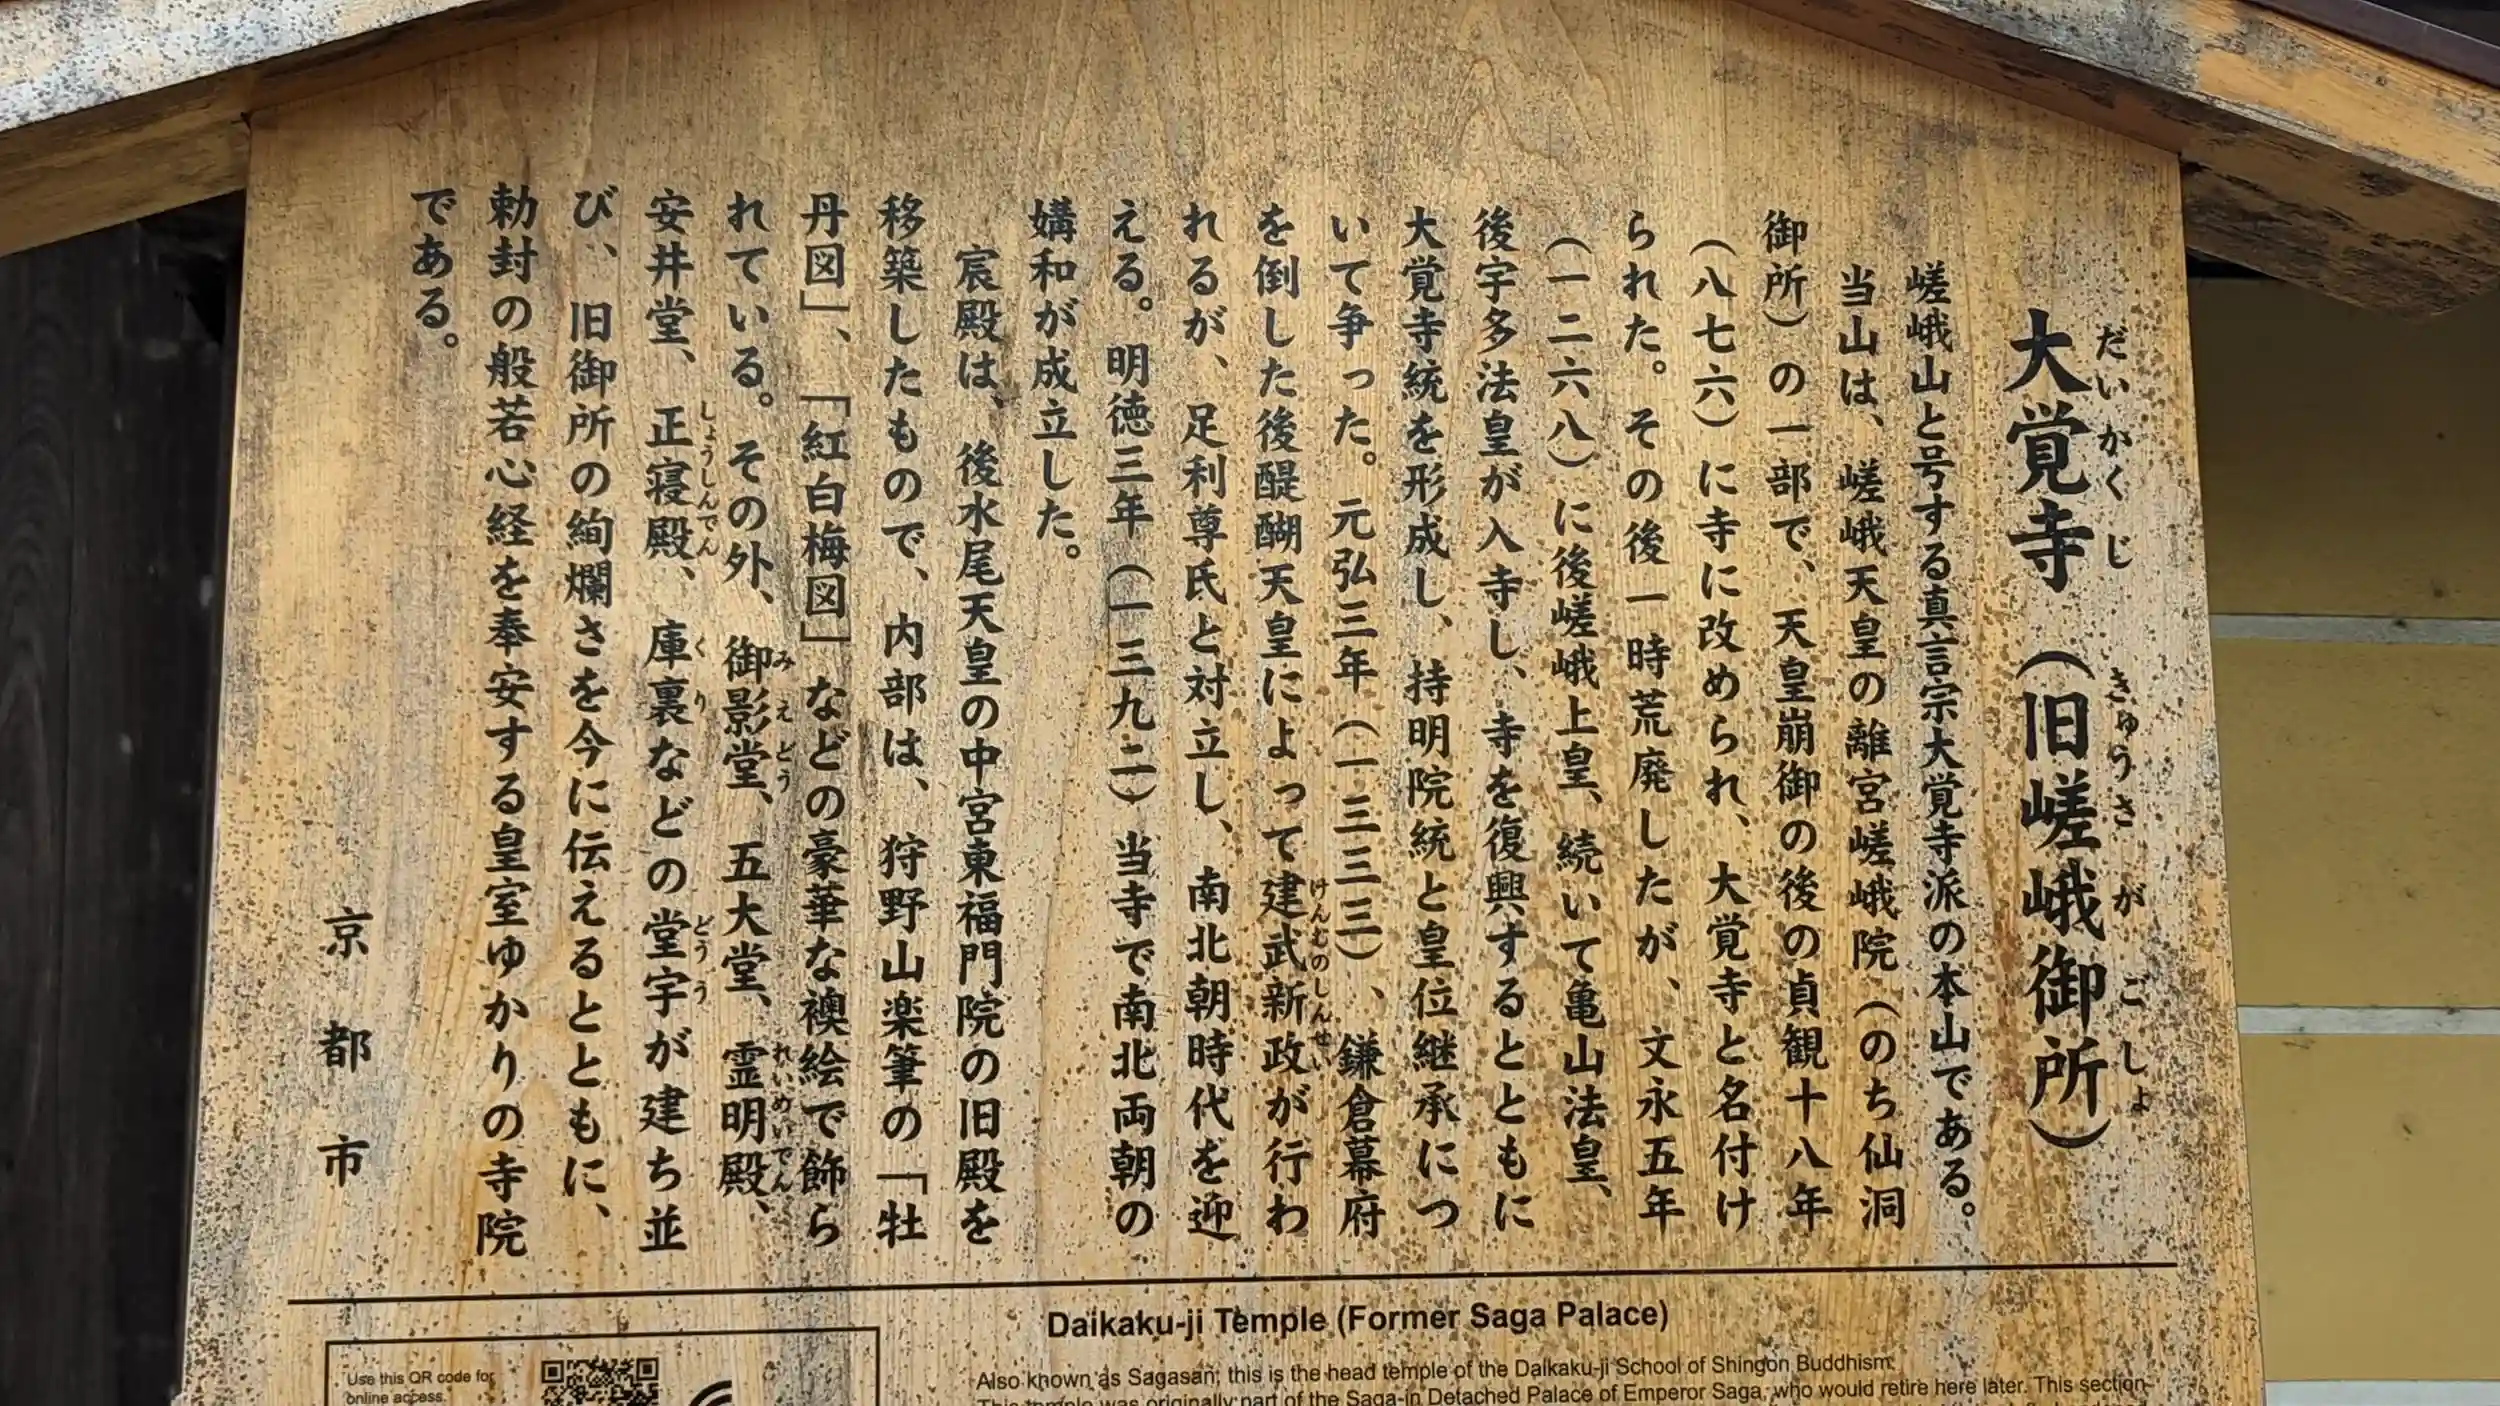 大覚寺（旧嵯峨御所）
だいかくじ きゅうさがごしょ
嵯峨山と号する真言宗大覚寺派の本山である。
当山は、嵯峨天皇の離宮嵯峨院（のち仙洞
御所）の一部で、天皇崩御の後の貞観十八年
（八七六）に寺に改められ、大覚寺と名付け
られた。その後一時荒廃したが、文永五年
（一二六八）に後嵯峨上皇、続いて亀山法皇、
後宇多法皇が入寺し、寺を復興するとともに
大覚寺統を形成し、持明院統と皇位継承につ
いて争った。元弘三年（一三三三）、鎌倉幕府
を倒した後醍醐天皇によって建武新政が行わ
けんむのしんせい
れるが、足利尊氏と対立し、南北朝時代を迎
える。明徳三年（一三九二）当寺で南北両朝の
媾和が成立した。
宸殿は、後水尾天皇の中宮東福門院の旧殿を
移築したもので、内部は、狩野山楽筆の「牡
丹図」、「紅白梅図」などの豪華な襖絵で飾ら
れている。その外、御影堂、五大堂、霊明殿、
みえどう れいめいでん
安井堂、正寝殿、庫裏などの堂宇が建ち並
しょうしんでん くり どうう
び、旧御所の絢爛さを今に伝えるとともに、
勅封の般若心経を奉安する皇室ゆかりの寺院
である。
京都市
Daikaku-ji Temple (Former Saga Palace)
Use this QR code for
online access.
Also known as Sagasan, this is the head temple of the Daikaku-ji School of Shingon Buddhism.
This temple was originally part of the Saga-in Detached Palace of Emperor Saga, who would retire here later. This section